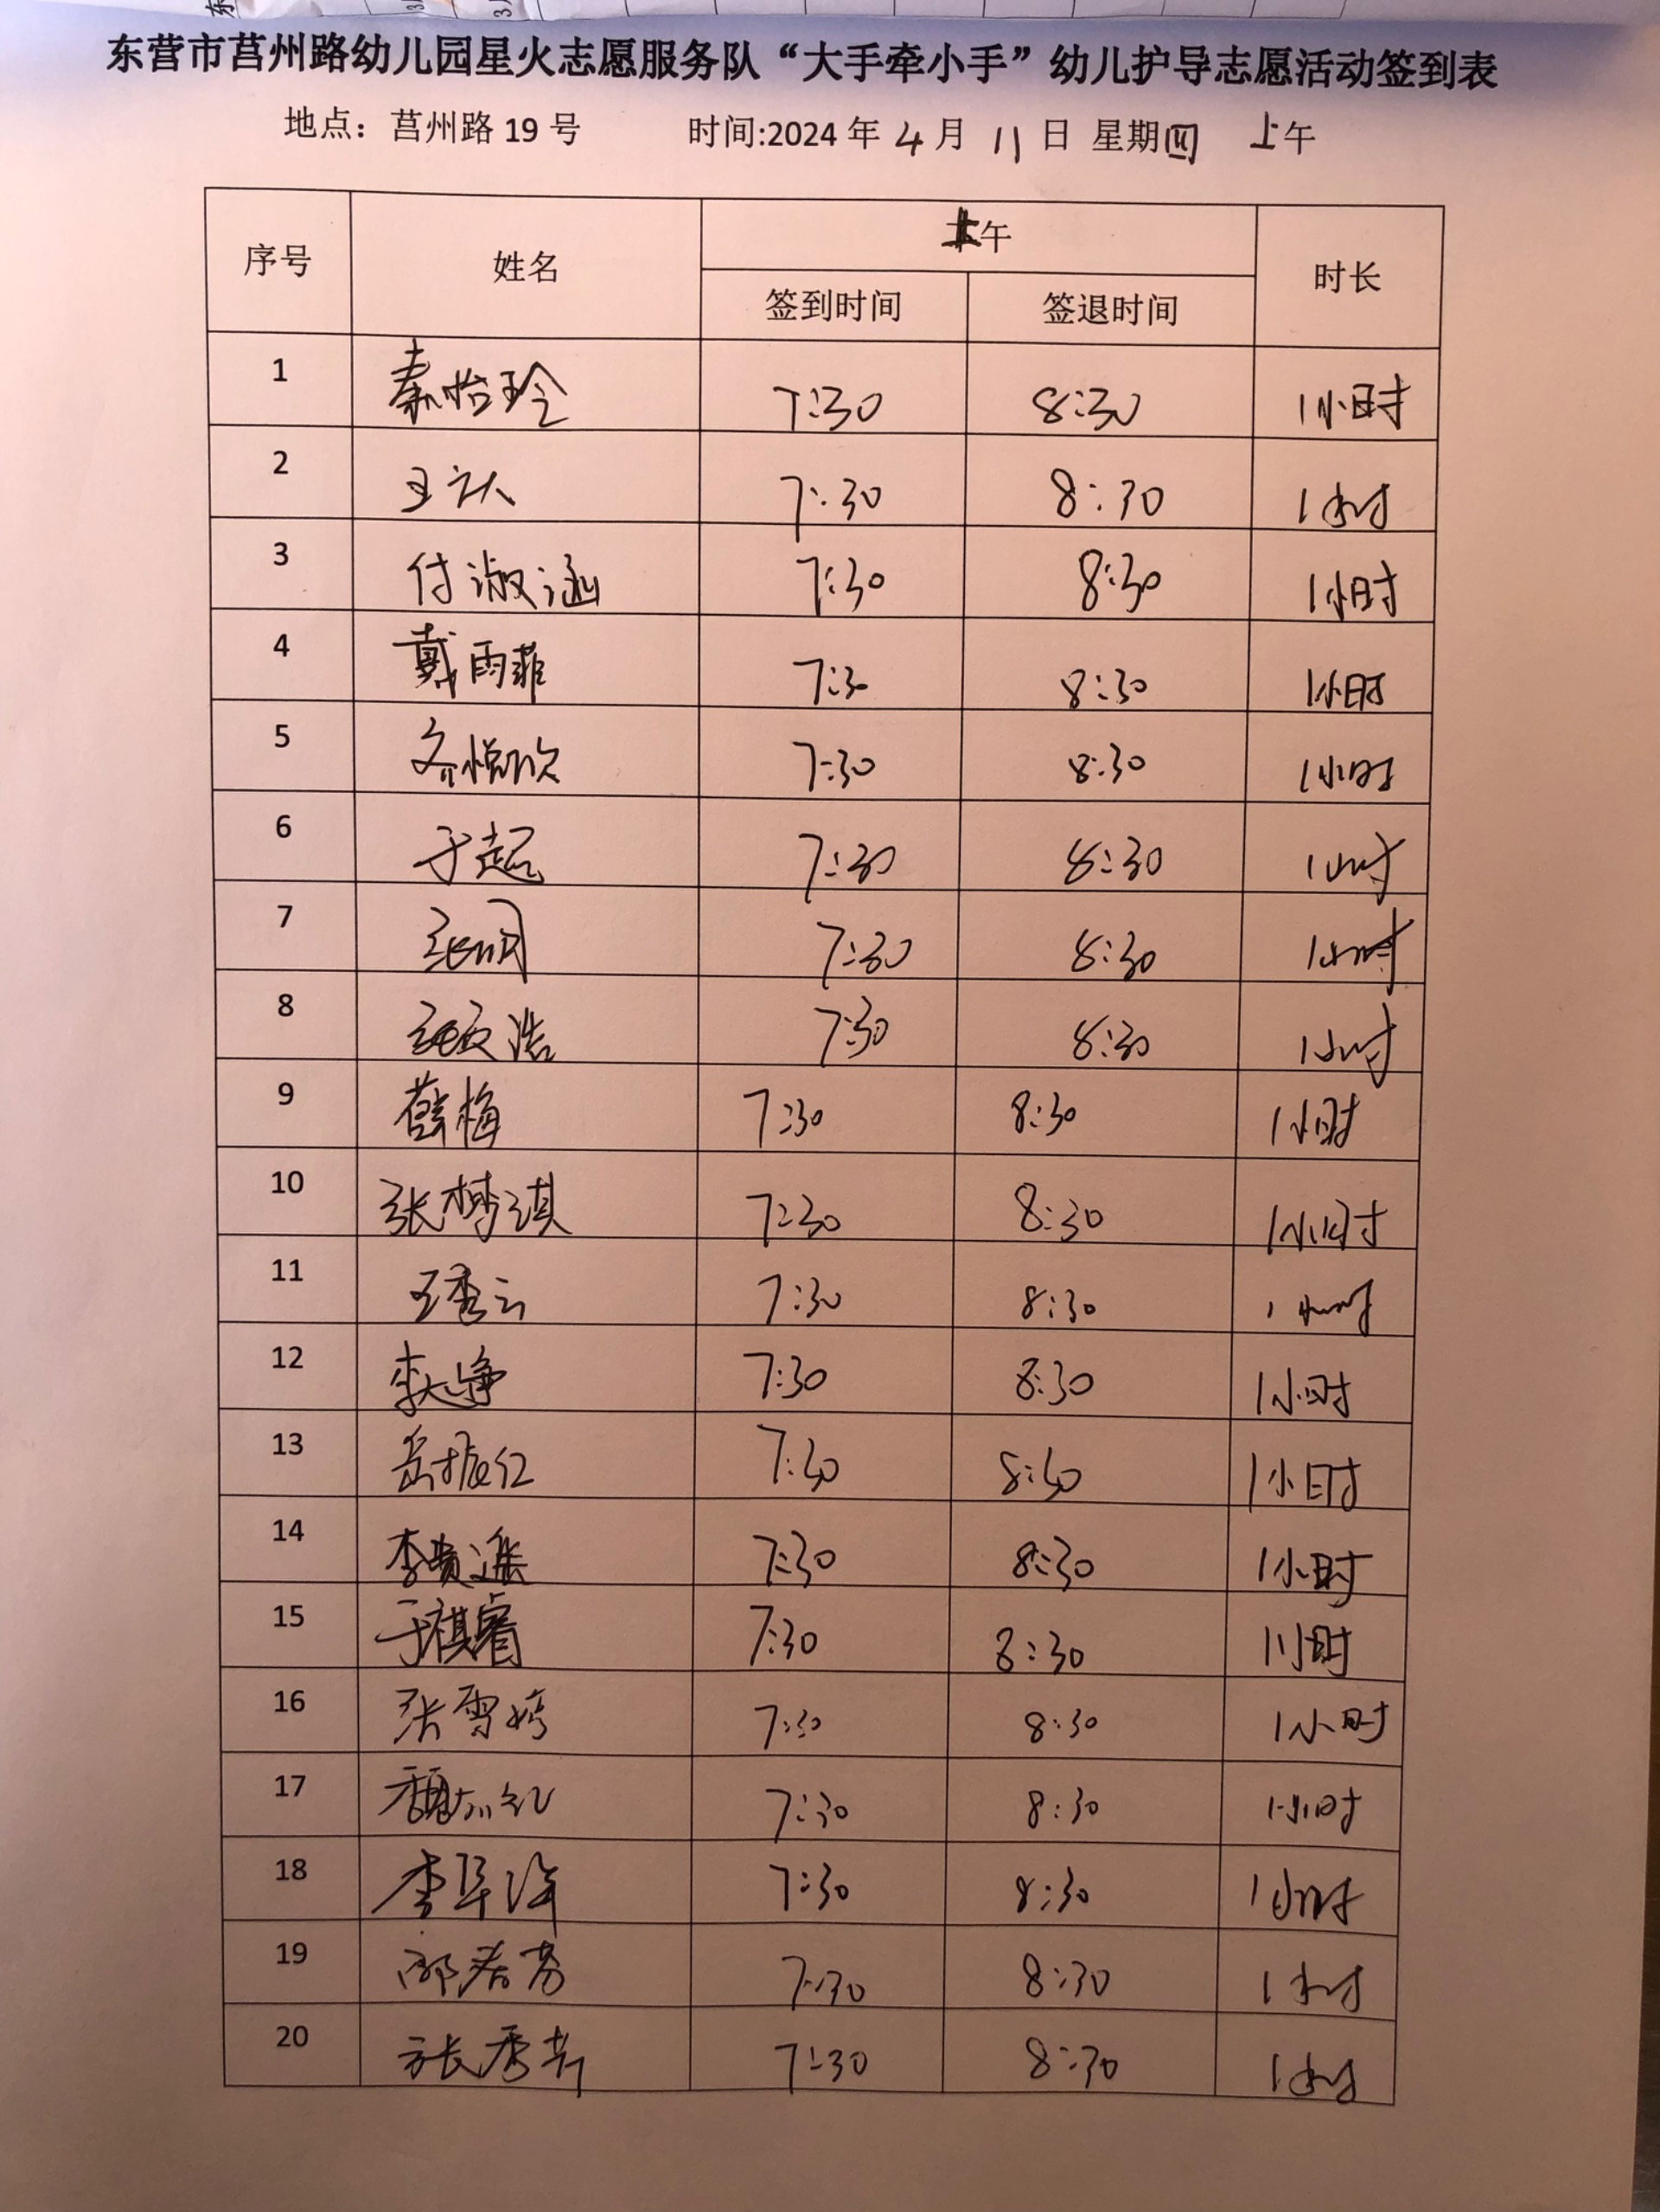 东营市莒州路幼儿园星火志愿服务队“大手牵小手”幼儿护导志愿活动签到表
地点：莒州路 19 号 时间:2024 年 4 月 11 日 星期四 上午
序号 姓名 上午 时长
签到时间 签退时间
1 秦怡玲 7:30 8:30 1小时
2 王 7:30 8:30 1小时
3 付淑涵 7:30 8:30 1小时
4 戴雨菲 7:30 8:30 1小时
5 齐悦欣 7:30 8:30 1小时
6 于超 7:30 8:30 1小时
7 张明 7:30 8:30 1小时
8 浩 7:30 8:30 1小时
9 薛梅 7:30 8:30 1小时
10 张梦琪 7:30 8:30 1小时
11 王秀云 7:30 8:30 1小时
12 李 7:30 8:30 1小时
13 岳振红 7:30 8:30 1小时
14 李贵 7:30 8:30 1小时
15 于祺睿 7:30 8:30 1小时
16 张雪婷 7:30 8:30 1小时
17 魏 红 7:30 8:30 1小时
18 李 7:30 8:30 1小时
19 芳 7:30 8:30 1小时
20 张秀芹 7:30 8:30 1小时